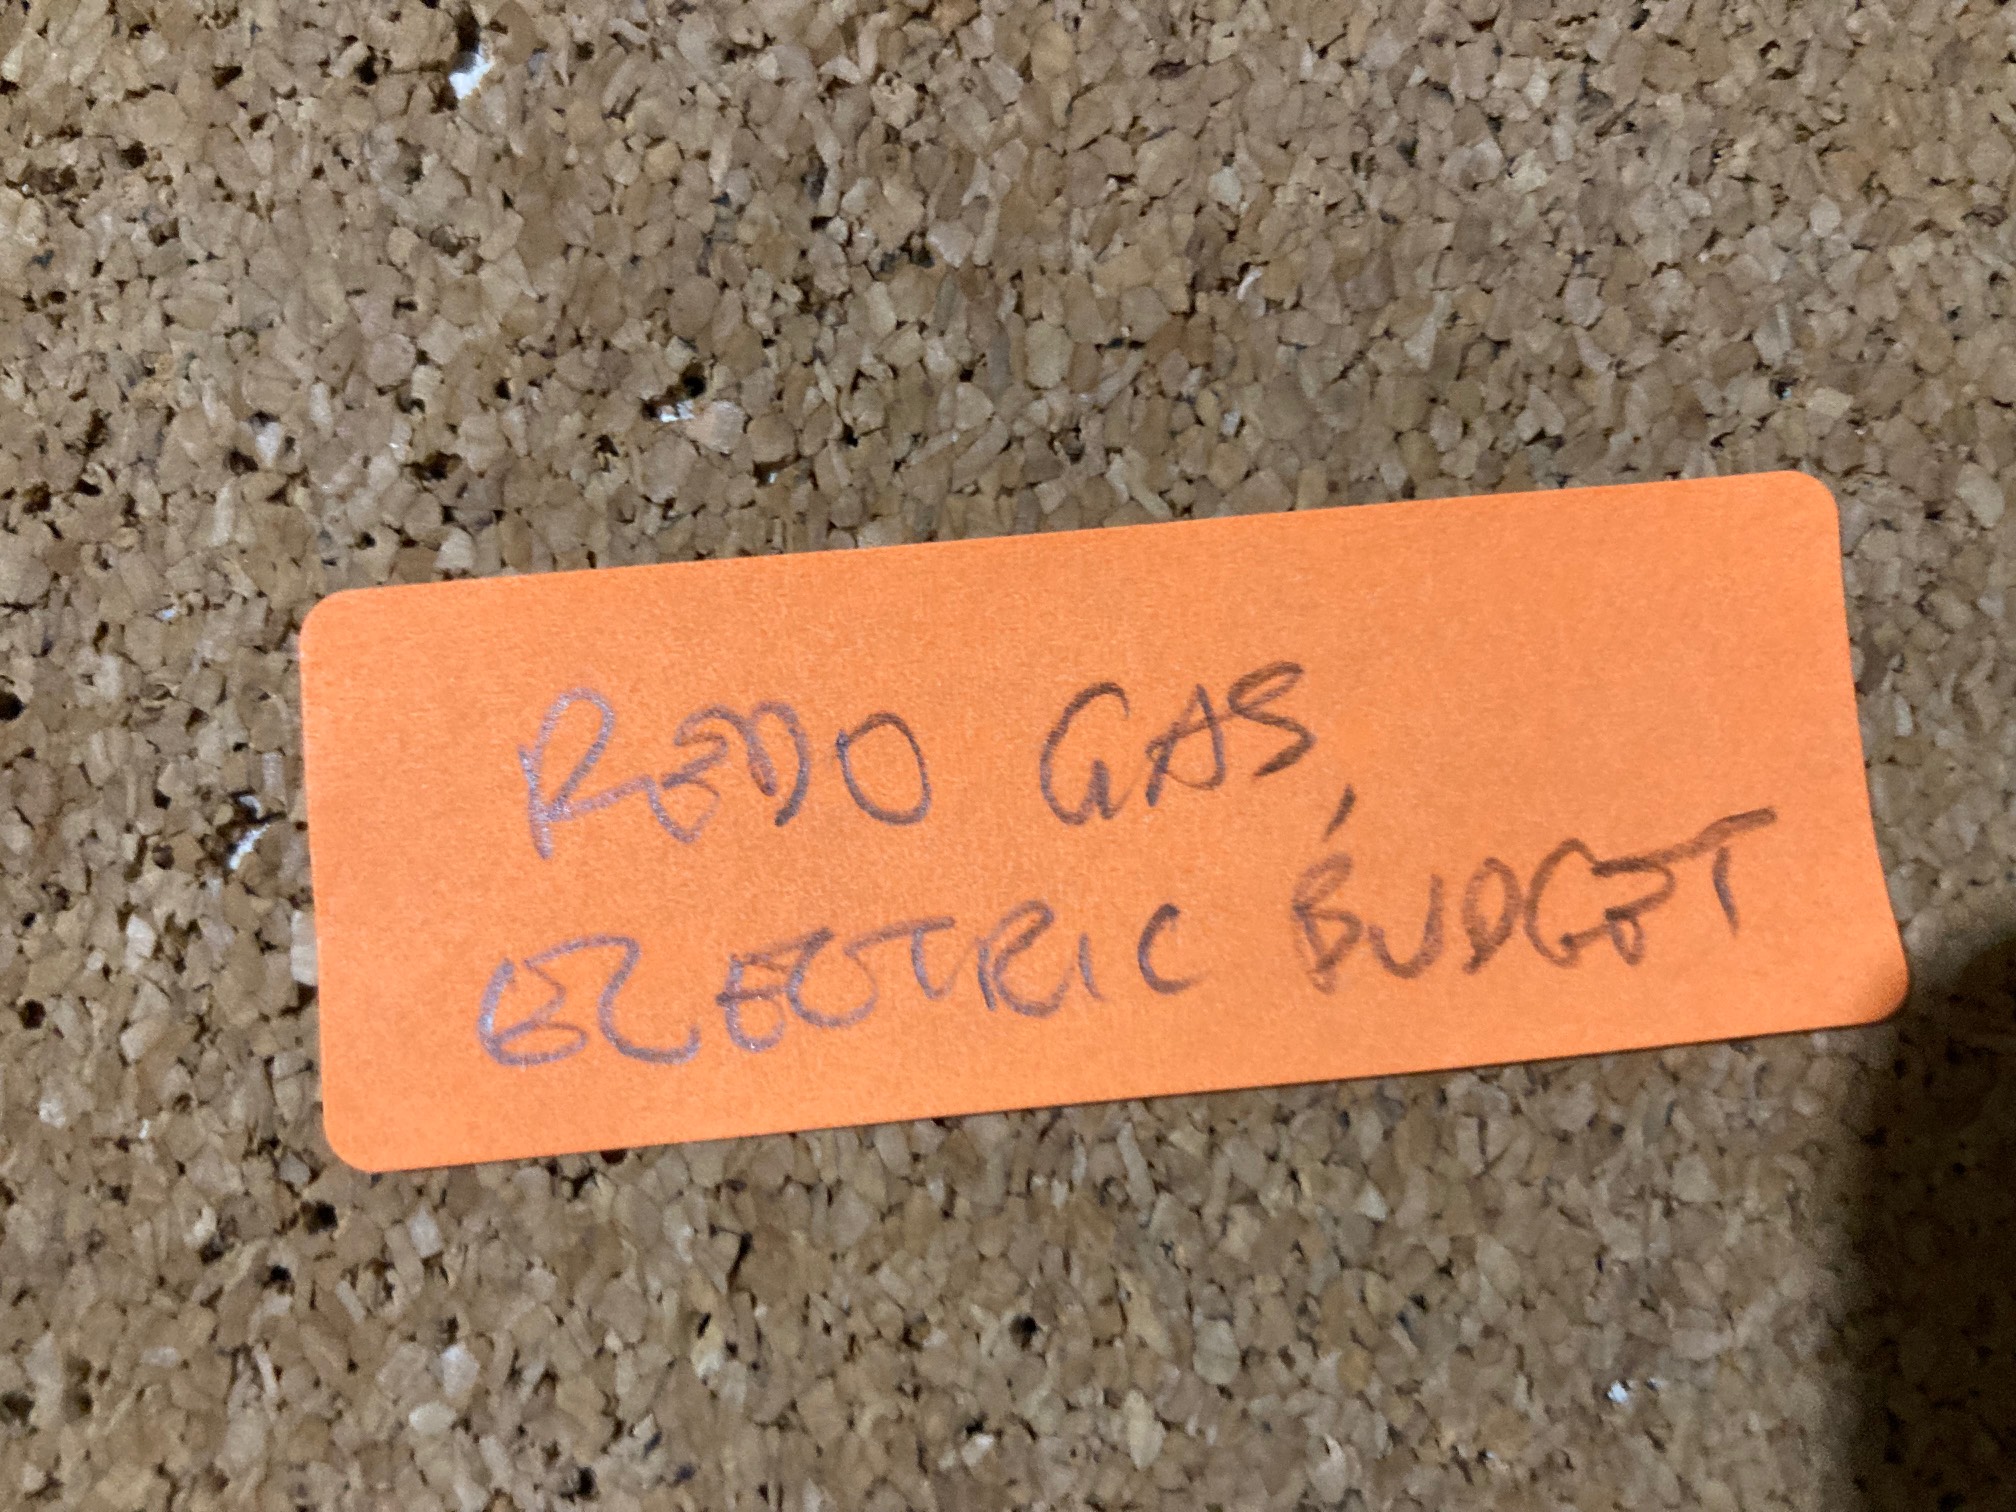 REDO GAS,
ELECTRIC BUDGET